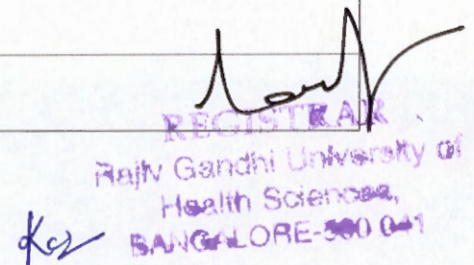 REGISTRAR
Rajiv Gandhi University of
Health Sciences,
BANGALORE-560 041